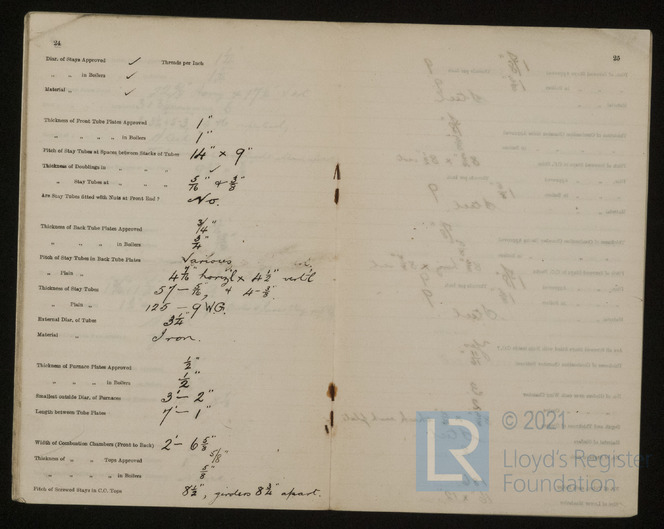 24
Diar. of Stays Approved ✓ Threads per Inch
„ „ in Boilers ✓
Material „ ✓
Thickness of Front Tube Plates Approved 1"
„ „ „ „ in Boilers 1"
Pitch of Stay Tubes at Spaces between Stacks of Tubes 14" × 9"
Thickness of Doublings in „ „ „ ✓
„ Stay Tubes at „ „ „ 5/16" & 3/8"
Are Stay Tubes fitted with Nuts at Front End? No.
Thickness of Back Tube Plates Approved 3/4"
„ „ „ in Boilers 3/4"
Pitch of Stay Tubes in Back Tube Plates Various
„ Plain „ 4 7/16" horizl × 4 1/2" vertl
Thickness of Stay Tubes 57 – 5/16", & 4 – 3/8"
„ Plain „ 125 – 9 W.G.
External Diar. of Tubes 3 1/4"
Material „ Iron.
Thickness of Furnace Plates Approved 1/2"
„ „ „ in Boilers 1/2"
Smallest outside Diar. of Furnaces 3' – 2"
Length between Tube Plates 7' – 1"
Width of Combustion Chambers (Front to Back) 2' – 6 5/8"
Thickness of „ „ Tops Approved 5/8"
„ „ „ „ in Boilers 5/8"
Pitch of Screwed Stays in C.C. Tops 8 1/2", girders 8 3/4" apart.
25
© 2021
LR
Lloyd's Register
Foundation